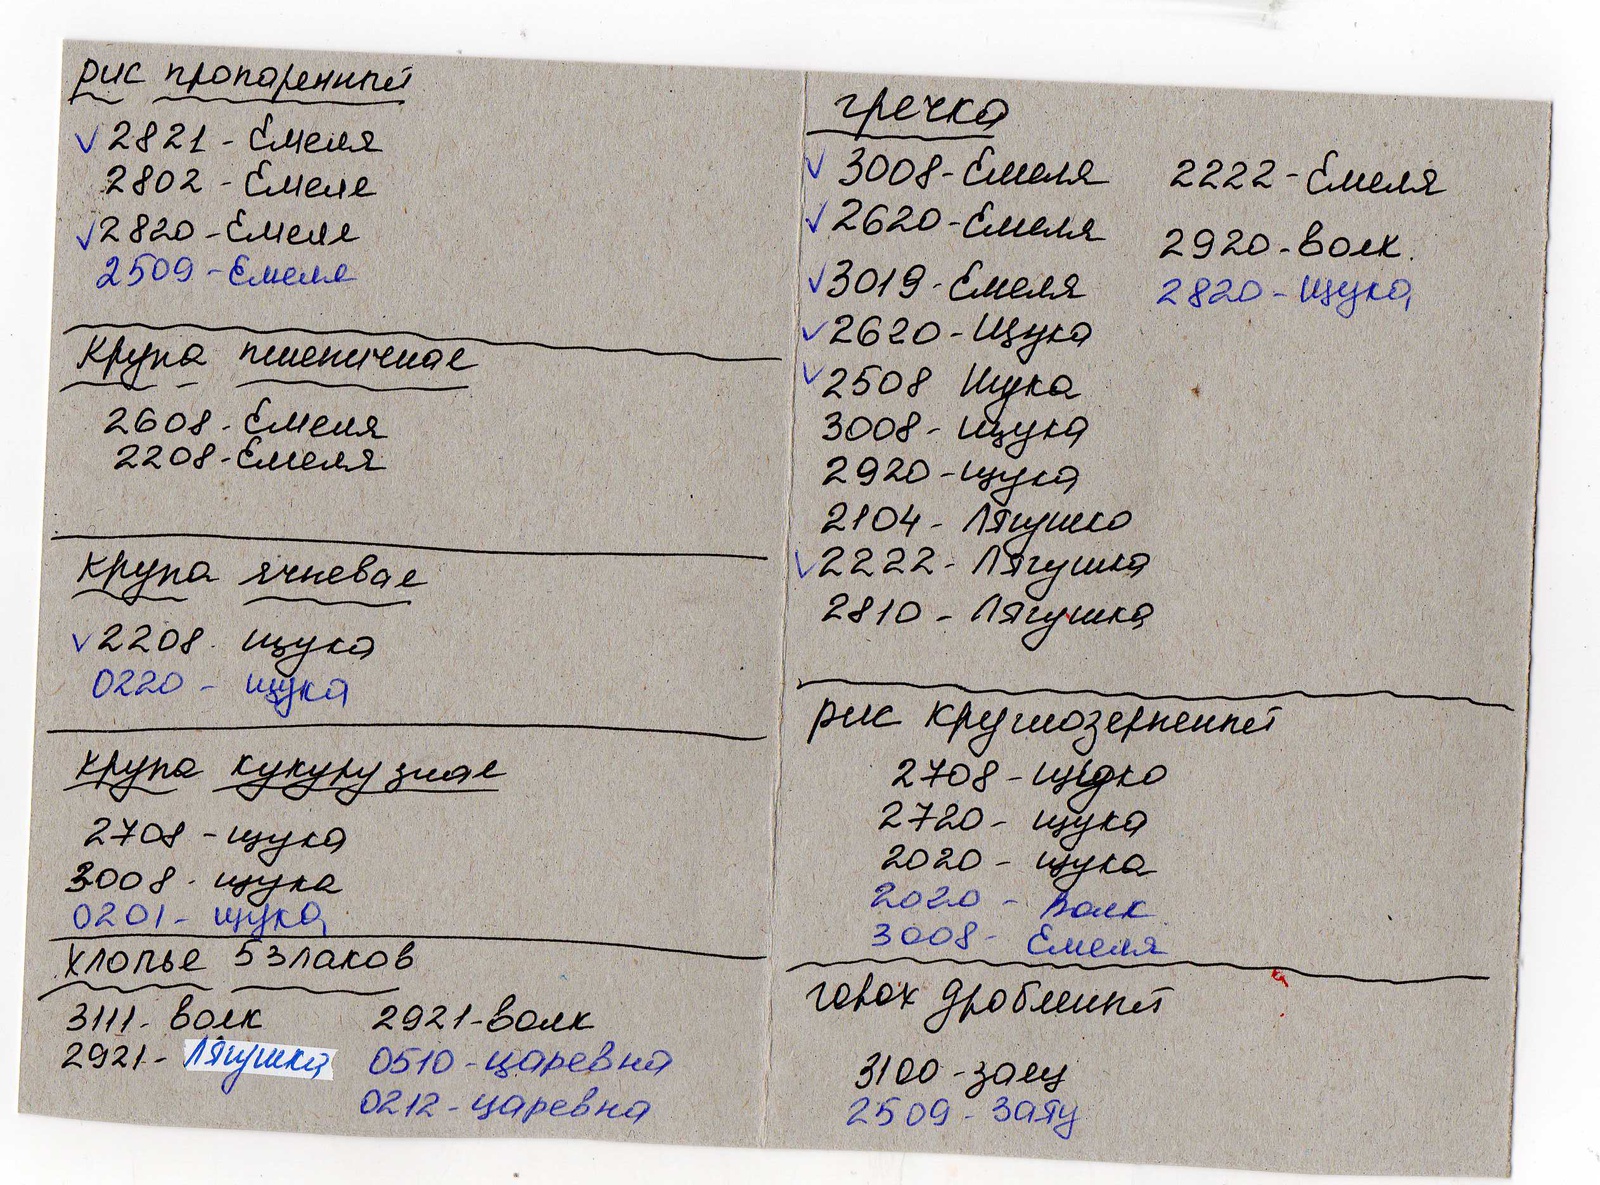 рис пропаренный
√ 2821 - Емеля
2802 - Емеля
√ 2820 - Емеля
2509 - Емеля
Крупа пшеничная
2608 - Емеля
2208 - Емеля
Крупа ячневая
√ 2208 - щука
0220 - щука
крупа кукурузная
2708 - щука
3008 - щука
0201 - щука
Хлопья 5 злаков
3111 - волк
2921 - Лягушка
2921 - волк
0510 - царевна
0212 - царевна
гречка
√ 3008 - Емеля
√ 2620 - Емеля
√ 3019 - Емеля
√ 2620 - Щука
√ 2508 Щука
3008 - щука
2920 - щука
2104 - Лягушка
√ 2222 - Лягушка
2810 - Лягушка
2222 - Емеля
2920 - волк.
2820 - Щука
рис круглозерненный
2708 - щука
2720 - щука
2020 - щука
2020 - Волк
3008 - Емеля
горох дробленный
3100 - заец
2509 - Заяц